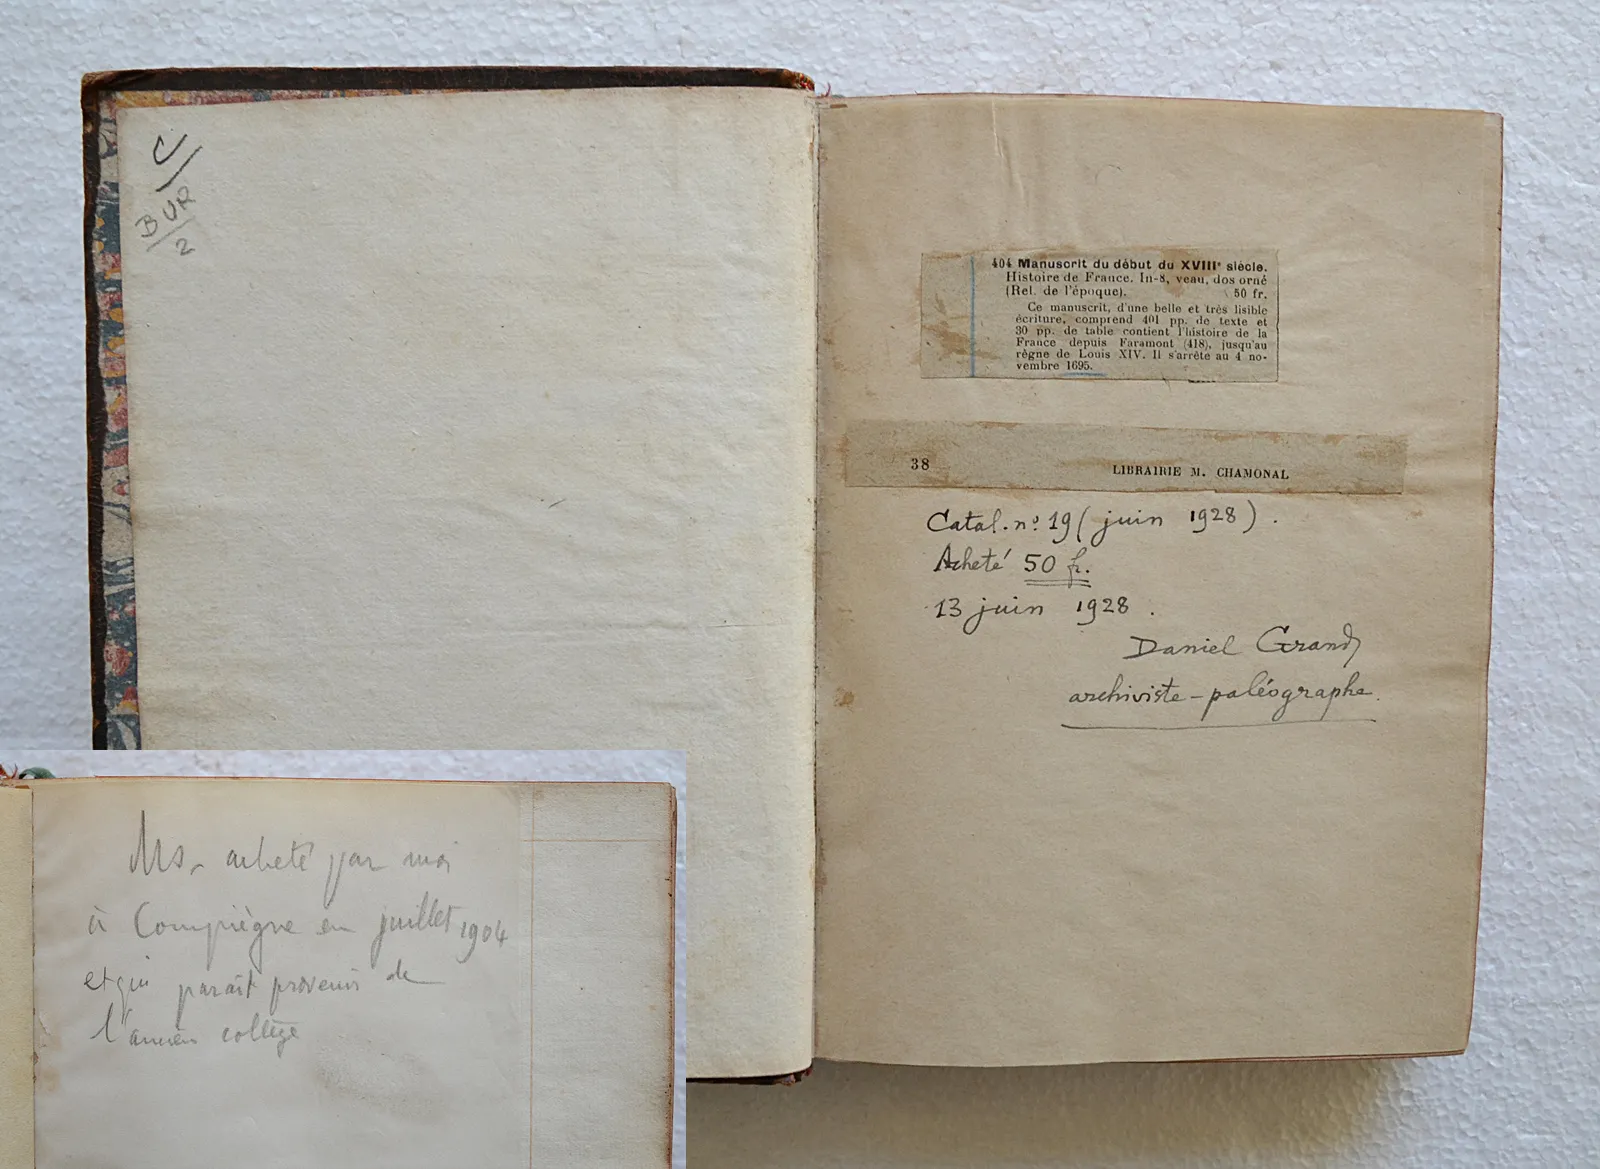 C/
BUR
2
404 Manuscrit du début du XVIIIᵉ siècle.
Histoire de France. In-8, veau, dos orné
(Rel. de l'époque). 50 fr.
Ce manuscrit, d'une belle et très lisible
écriture, comprend 401 pp. de texte et
30 pp. de table contient l'histoire de la
France depuis Faramont (418), jusqu'au
règne de Louis XIV. Il s'arrête au 4 no-
vembre 1695.
38 LIBRAIRIE M. CHAMONAL
Catal. nº 19 (juin 1928).
Acheté 50 fr.
13 juin 1928.
Daniel Grand
archiviste-paléographe.
Ms. acheté par moi
à Compiègne en juillet 1904
et qui paraît provenir de
l'ancien collège